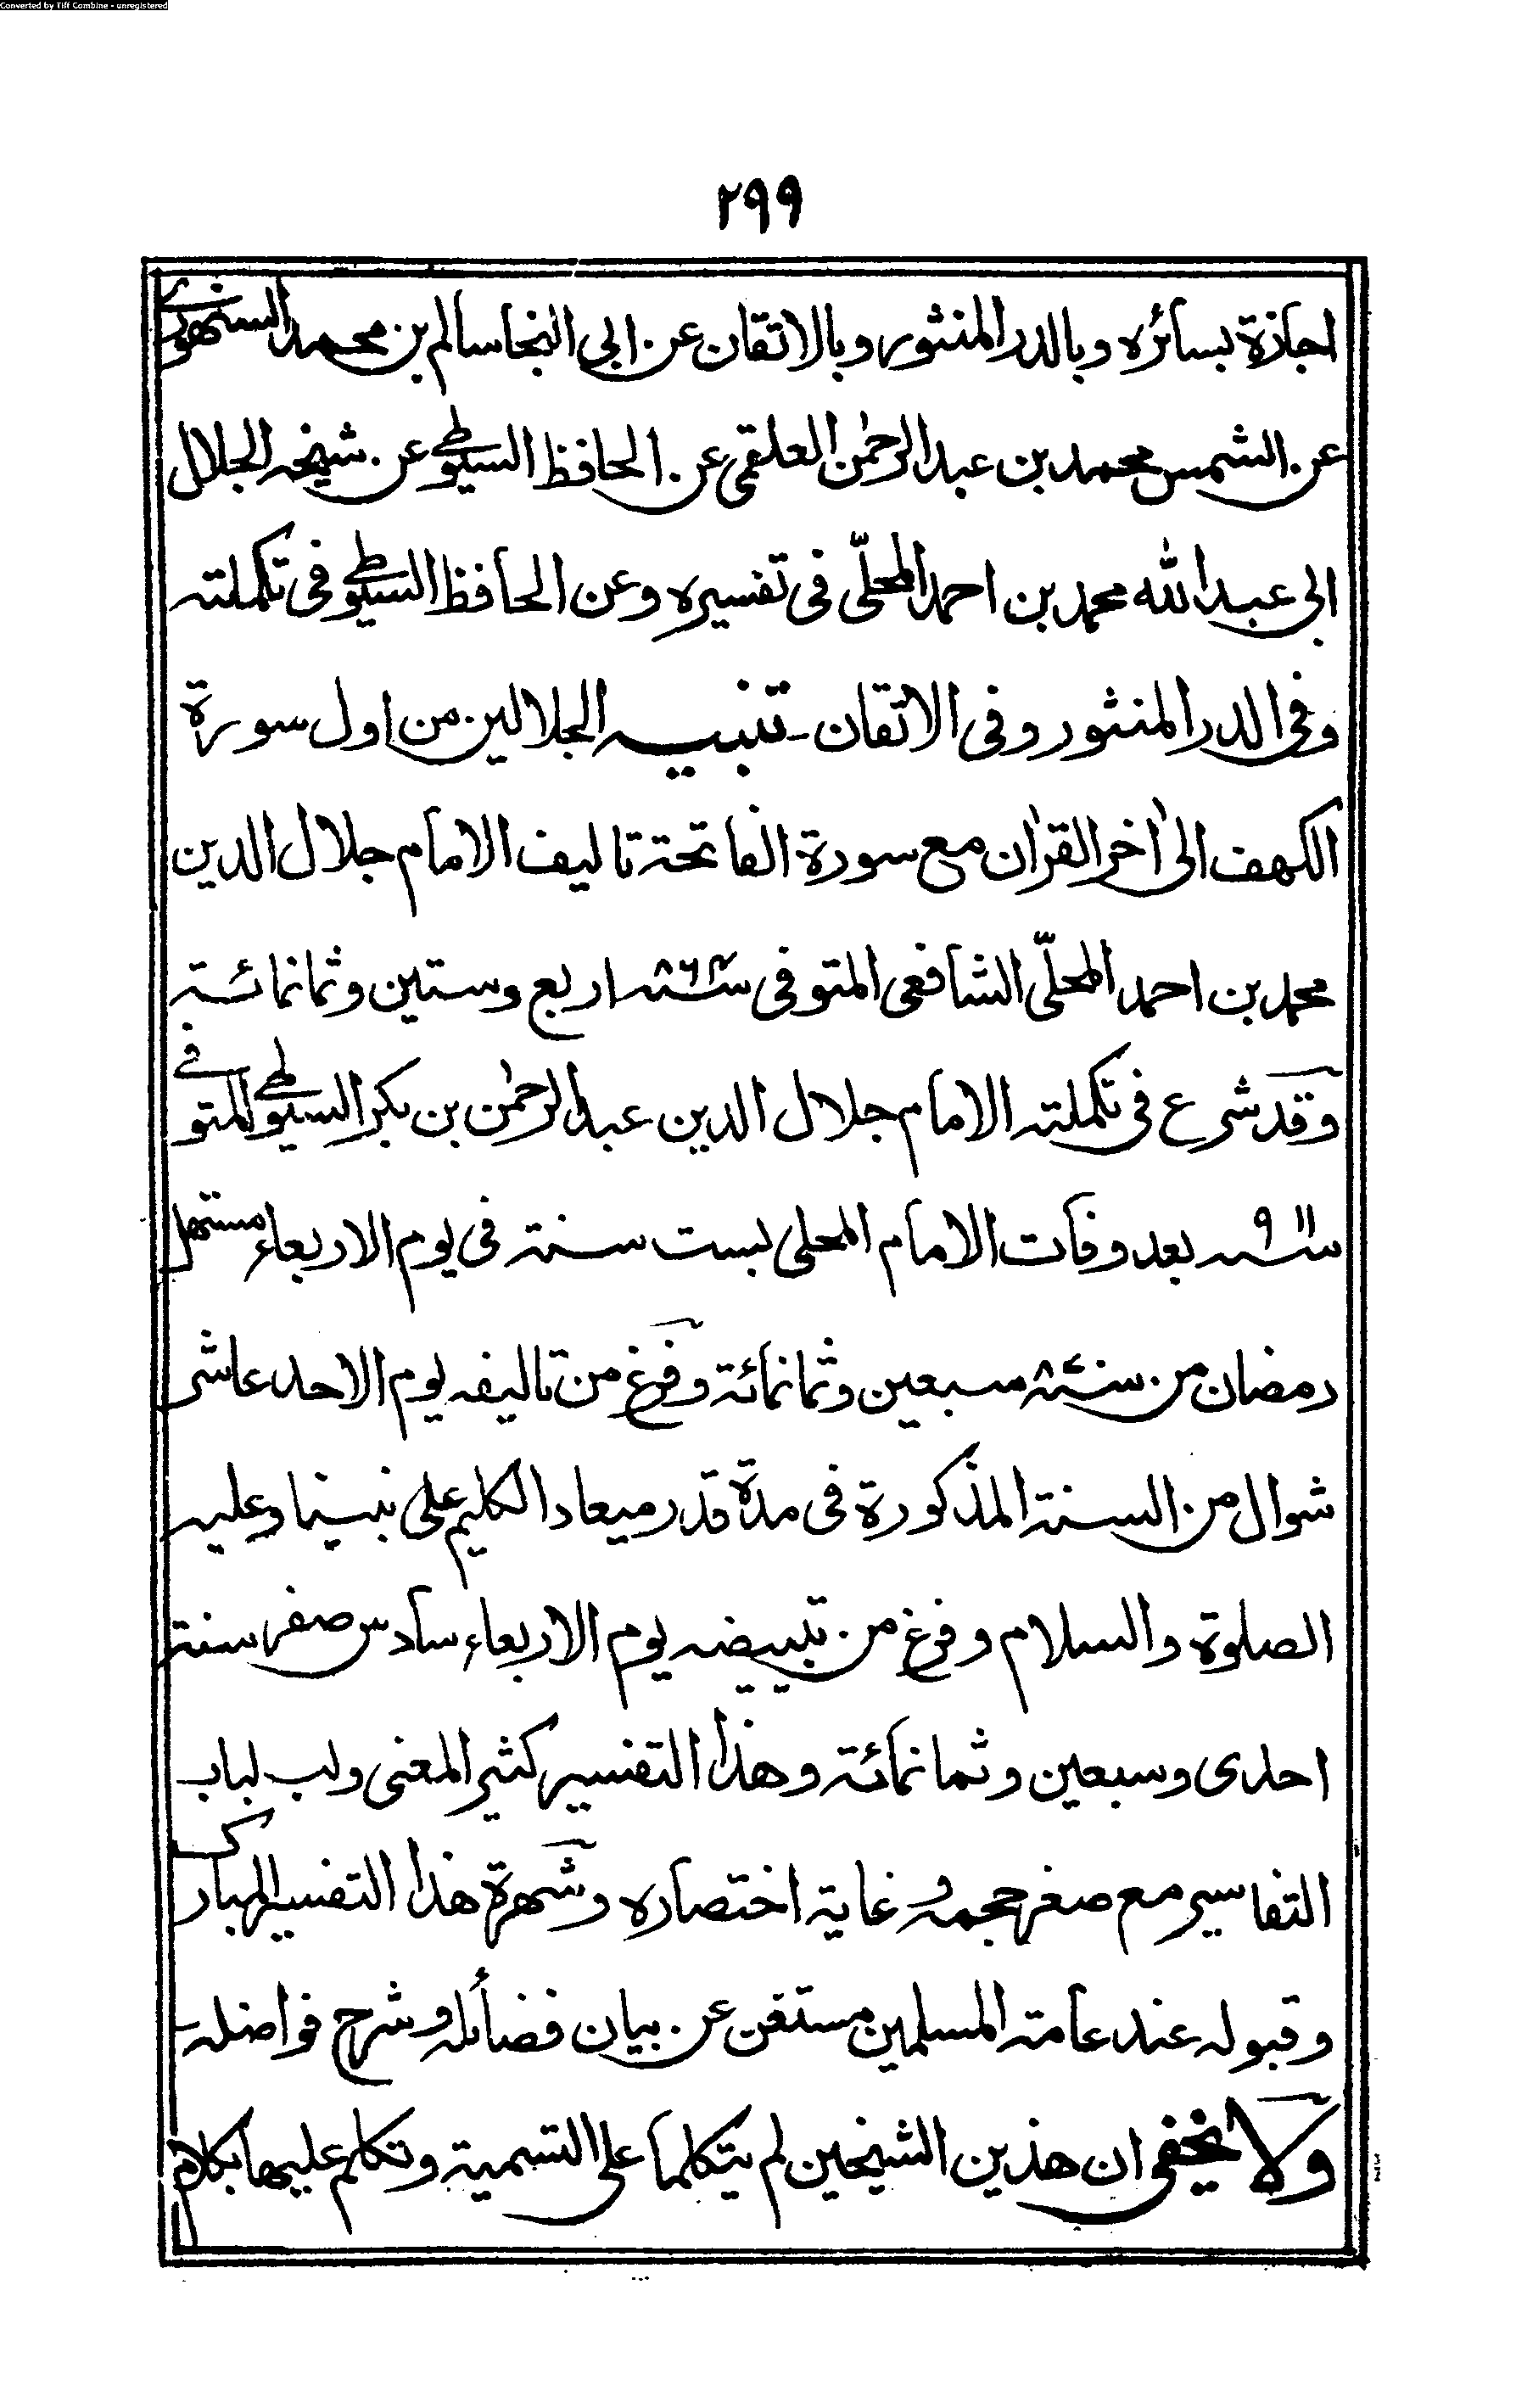 Converted by Tiff Combine - unregistered
٢٩٩
اجازة بسائره وبالدر المنثور وبالاتقان عن ابي النجا سالم بن محمد السنهوري
عن الشمس محمد بن عبد الرحمٰن العلقمي عن الحافظ السيوطي عن شيخه الجلال
ابي عبد الله محمد بن احمد المحلّي في تفسيره وعن الحافظ السيوطي في تكملته
وفي الدر المنثور وفي الاتقان - تنبيه الجلالين من اول سورة
الكهف الىٰ اٰخر القراٰن مع سورة الفاتحة تاليف الامام جلال الدين
محمد بن احمد المحلّي الشافعي المتوفى سنة ٨٦٤ اربع وستين وثمانمائة
وقد شرع في تكملته الامام جلال الدين عبد الرحمٰن بن بكر السيوطي المتوفي
سنة ٩١١ بعد وفات الامام المحلي بست سنة في يوم الاربعاء مستهل
رمضان من سنة ٨٧٠ سبعين وثمانمائة وفرغ من تاليفه يوم الاحد عاشر
شوال من السنة المذكورة في مدة قدر ميعاد الكليم على نبينا وعليه
الصلوة والسلام وفرغ من تبييضه يوم الاربعاء سادس صفر سنة
احدى وسبعين وثمانمائة وهذا التفسير كثير المعنى ولب لباب
التفاسير مع صغر حجمه و غاية اختصاره وشهرة هذا التفسير المبارك
وقبوله عند عامة المسلمين مستغن عن بيان فضائله وشرح فواضله -
ولا يخفى ان هذين الشيخين لم يتكلما على التسمية وتكلم عليها بكلام